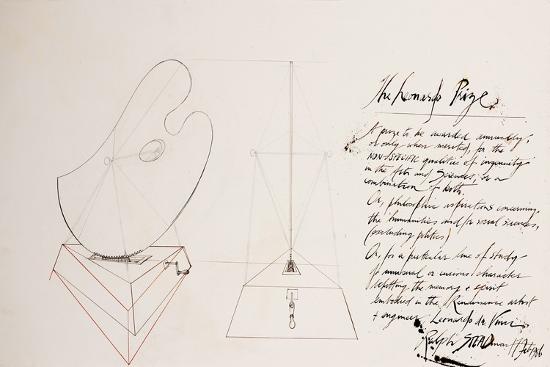 The Leonardo Prize.
A prize to be awarded annually,
or only when merited, for the
NON-SPECIFIC qualities of ingenuity
in the Arts and Sciences, or a
combination of both.
Or, philosophic aspirations concerning
the humanities and/or social sciences,
(excluding politics)
Or, for a particular line of study
of unusual or curious character
befitting the memory & spirit
embodied in the Renaissance artist
& engineer, Leonardo da Vinci.
Ralph STEADman